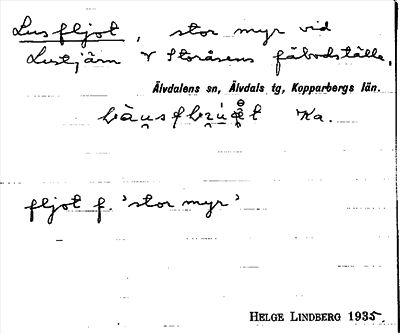 Lusfljot, stor myr vid
Lustjärn v Storåsens fäbodställe,
Älvdalens sn, Älvdals tg, Kopparbergs län.
Ka.
fljot f. 'stor myr'
HELGE LINDBERG 1935.